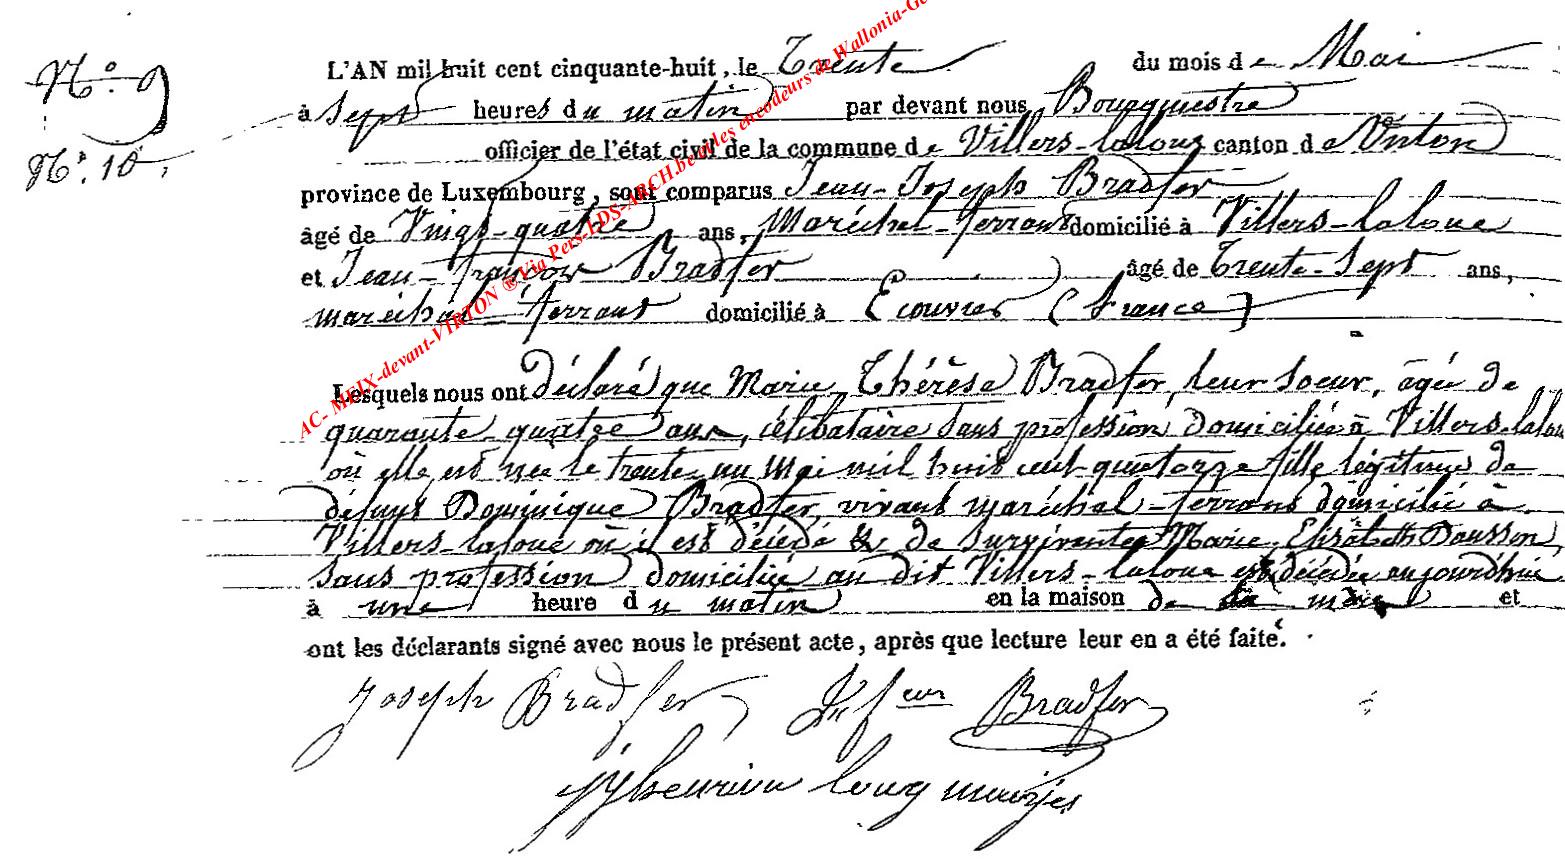 N° 9
L'AN mil huit cent cinquante-huit, le Trente du mois de Mai
à sept heures du matin par devant nous Bourgmestre
N° 10
officier de l'état civil de la commune de Villers-laloue canton de Virton
province de Luxembourg, sont comparus Jean-Joseph Bradfer
âgé de Vingt-quatre ans, Maréchal-ferrant domicilié à Villers-laloue
et Jean-françois Bradfer âgé de Trente-Sept ans,
maréchal-ferrant domicilié à Ecouviez (France)
Lesquels nous ont déclaré que Marie Thérèse Bradfer, leur soeur, âgée de
quarante-quatre ans, célibataire sans profession domiciliée à Villers-laloue
où elle est née le trente un Mai mil huit cent quatorze fille légitime de
défunt Dominique Bradfer, vivant maréchal-ferrant domicilié à
Villers-laloue où il est décédé & de survivante Marie Elisabeth Dausson,
sans profession domiciliée au dit Villers-laloue est décédée aujourd'hui
à une heure du matin en la maison de sa mère et
ont les déclarants signé avec nous le présent acte, après que lecture leur en a été faite.
Joseph Bradfer Bradfer
AC- MEIX-devant-VIRTON ® Via Pers-LDS-ARCH.be et les encodeurs de Wallonia-Ge